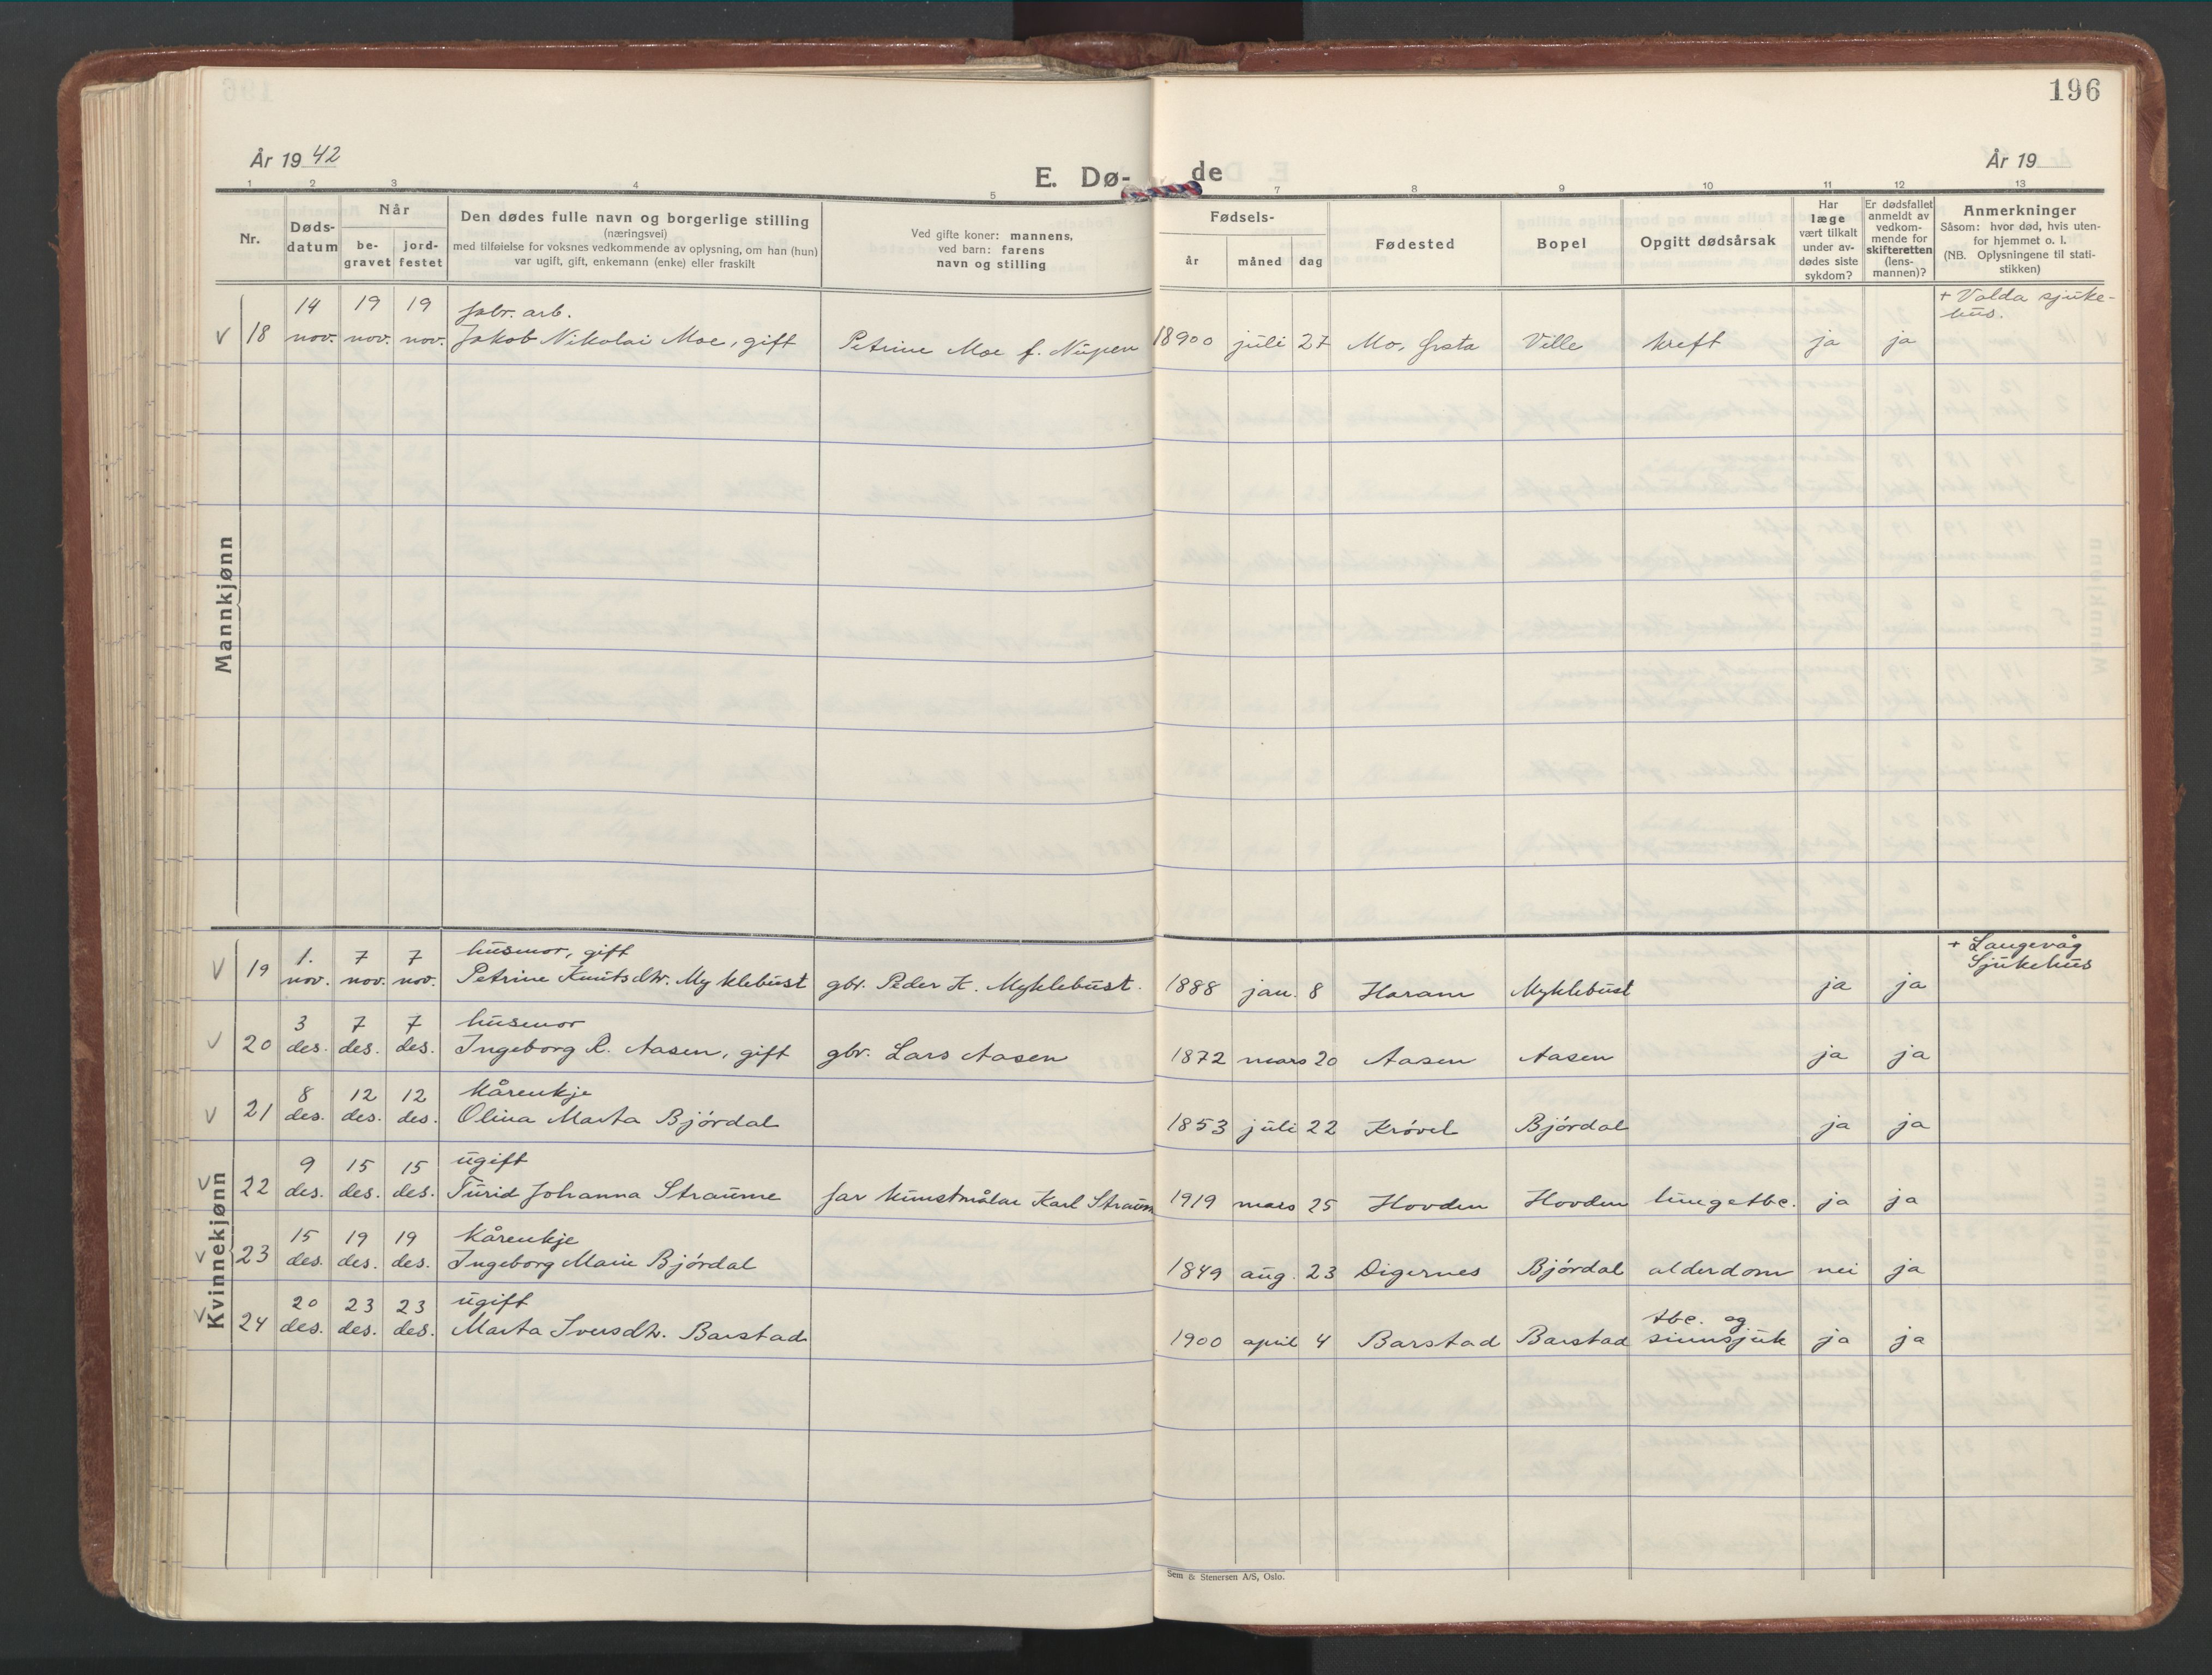 196
År 19 42
E. Dø-
de
År 19
1 2 3 4 5 7 8 9 10 11 12 13
Nr.
Døds-
datum
Når
be-
gravet
jord-
festet
Den dødes fulle navn og borgerlige stilling
(næringsvei)
med tilføielse for voksnes vedkommende av oplysning, om han (hun)
var ugift, gift, enkemann (enke) eller fraskilt
Ved gifte koner: mannens,
ved barn: farens
navn og stilling
Fødsels-
år måned dag
Fødested
Bopel
Opgitt dødsårsak
Har
læge
vært tilkalt
under av-
dødes siste
sykdom?
Er dødsfallet
anmeldt av
vedkom-
mende for
skifteretten
(lens-
mannen)?
Anmerkninger
Såsom: hvor død, hvis uten-
for hjemmet o. l.
(NB. Oplysningene til stati-
stikken)
Mannkjønn
14 19 19 fabr. arb. + Volda sjuke-
hus.
V 18 nov. nov. nov. Jakob Nikolai Moe, gift Petrine Moe f. Nupen 18900 juli 27 Mo, Ørsta Ville kreft ja ja
Kvinnekjønn
1. 7 7 husmor, gift + Langevåg
Sjukehus
V 19 nov. nov. nov. Petrine Knutsdtr. Myklebust gbr. Peder K. Myklebust. 1888 jan. 8 Haram Myklebust ja ja
3 7 7 husmor
V 20 des. des. des. Ingeborg R. Aasen, gift gbr. Lars Aasen 1872 mars 20 Aasen Aasen ja ja
8 12 12 kårenkje
V 21 des. des. des. Olina Marta Bjørdal 1853 juli 22 Krøvel Bjørdal ja ja
9 15 15 ugift
V 22 des. des. des. Turid Johanna Straume far kunstmålar Karl Straum 1919 mars 25 Hovden Hovden lungetbc. ja ja
15 19 19 kårenkje
V 23 des. des. des. Ingeborg Marie Bjørdal 1849 aug. 23 Digernes Bjørdal alderdom nei ja
20 23 23 ugift tbc. og
V 24 des. des. des. Marta Iversdtr. Barstad 1900 april 4 Barstad Barstad sinnsjuk ja ja
Sem & Stenersen A/S, Oslo.